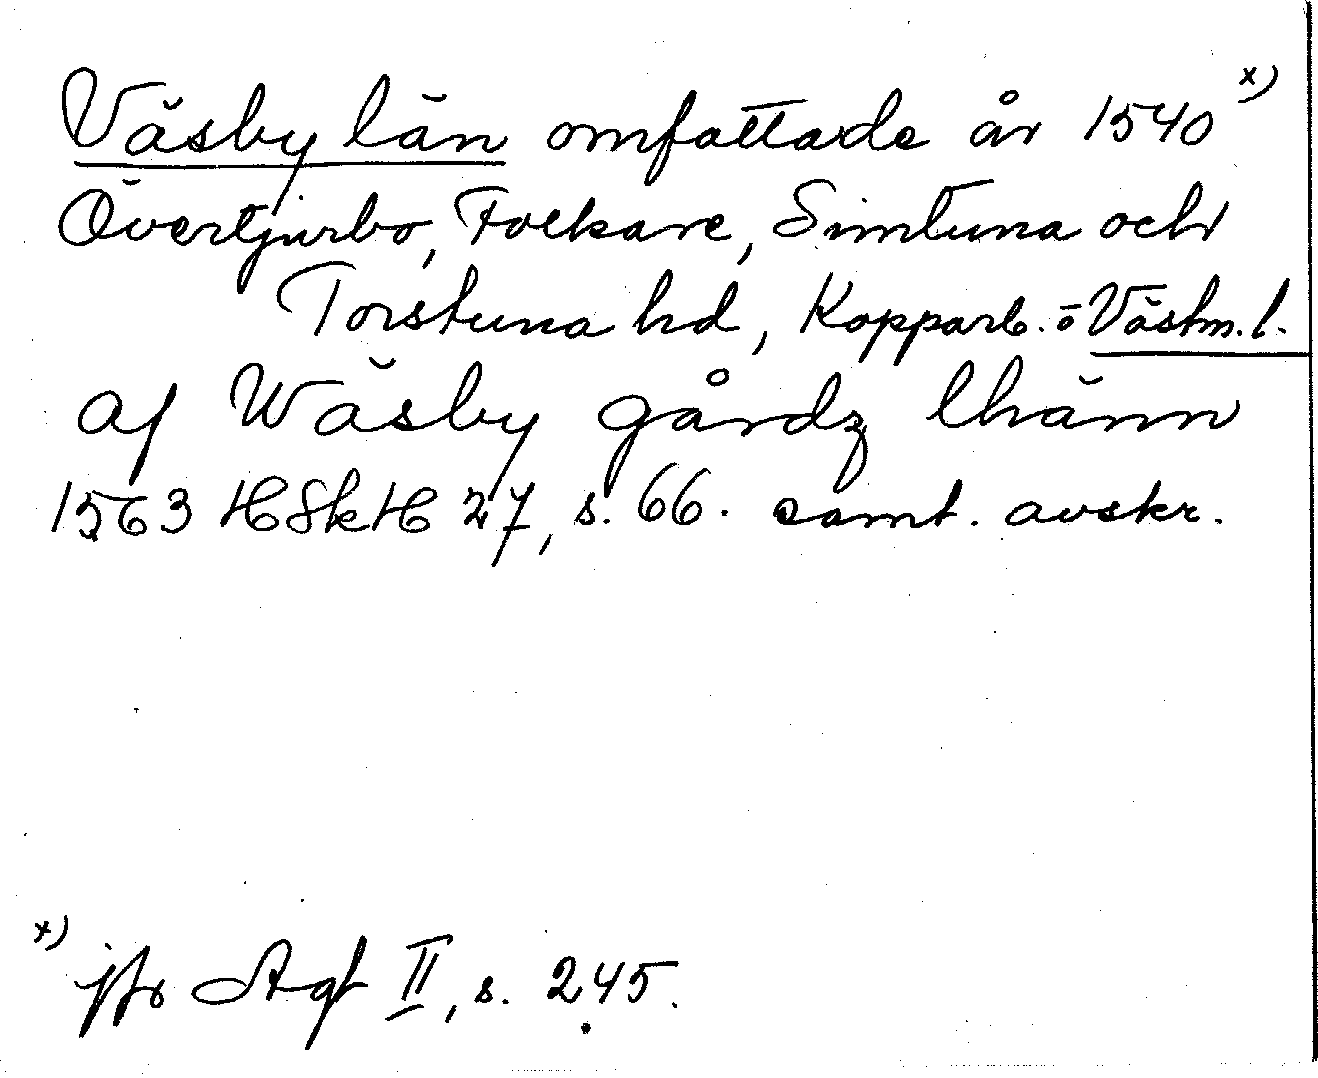 Väsby län omfattade år 1540 x)
Övertjurbo, Folkare, Simtuna och
Torstuna hd, Kopparb. o Västm. l.
af Wäsby gårdz lhänn
1563 HSkH 27, s. 66. samt. avskr.
x) jfr Agf II, s. 245.